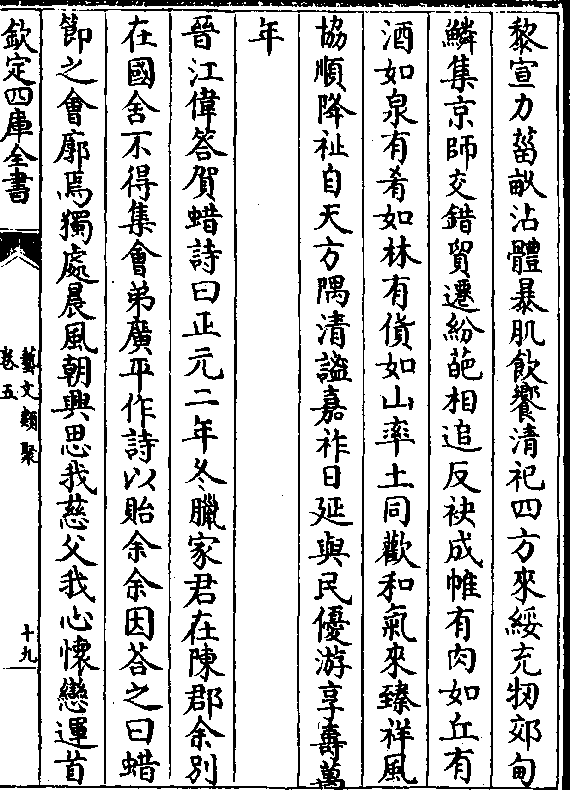 黎宣力菑畝沾體暴肌飲饗清祀四方來綏充牣郊甸
鱗集京師交錯貿遷紛葩相追反袂成帷有肉如丘有
酒如泉有肴如林有貨如山率土同歡和氣來臻祥風
協順降祉自天方隅清謐嘉祚日延與民優游享壽萬
年
晉江偉答賀蜡詩曰正元二年冬臘家君在陳郡余別
在國舍不得集會弟廣平作詩以貽余余因答之曰蜡
節之會廓焉獨處晨風朝興思我慈父我心懷戀運首
欽定四庫全書
藝文類聚
卷五
十九